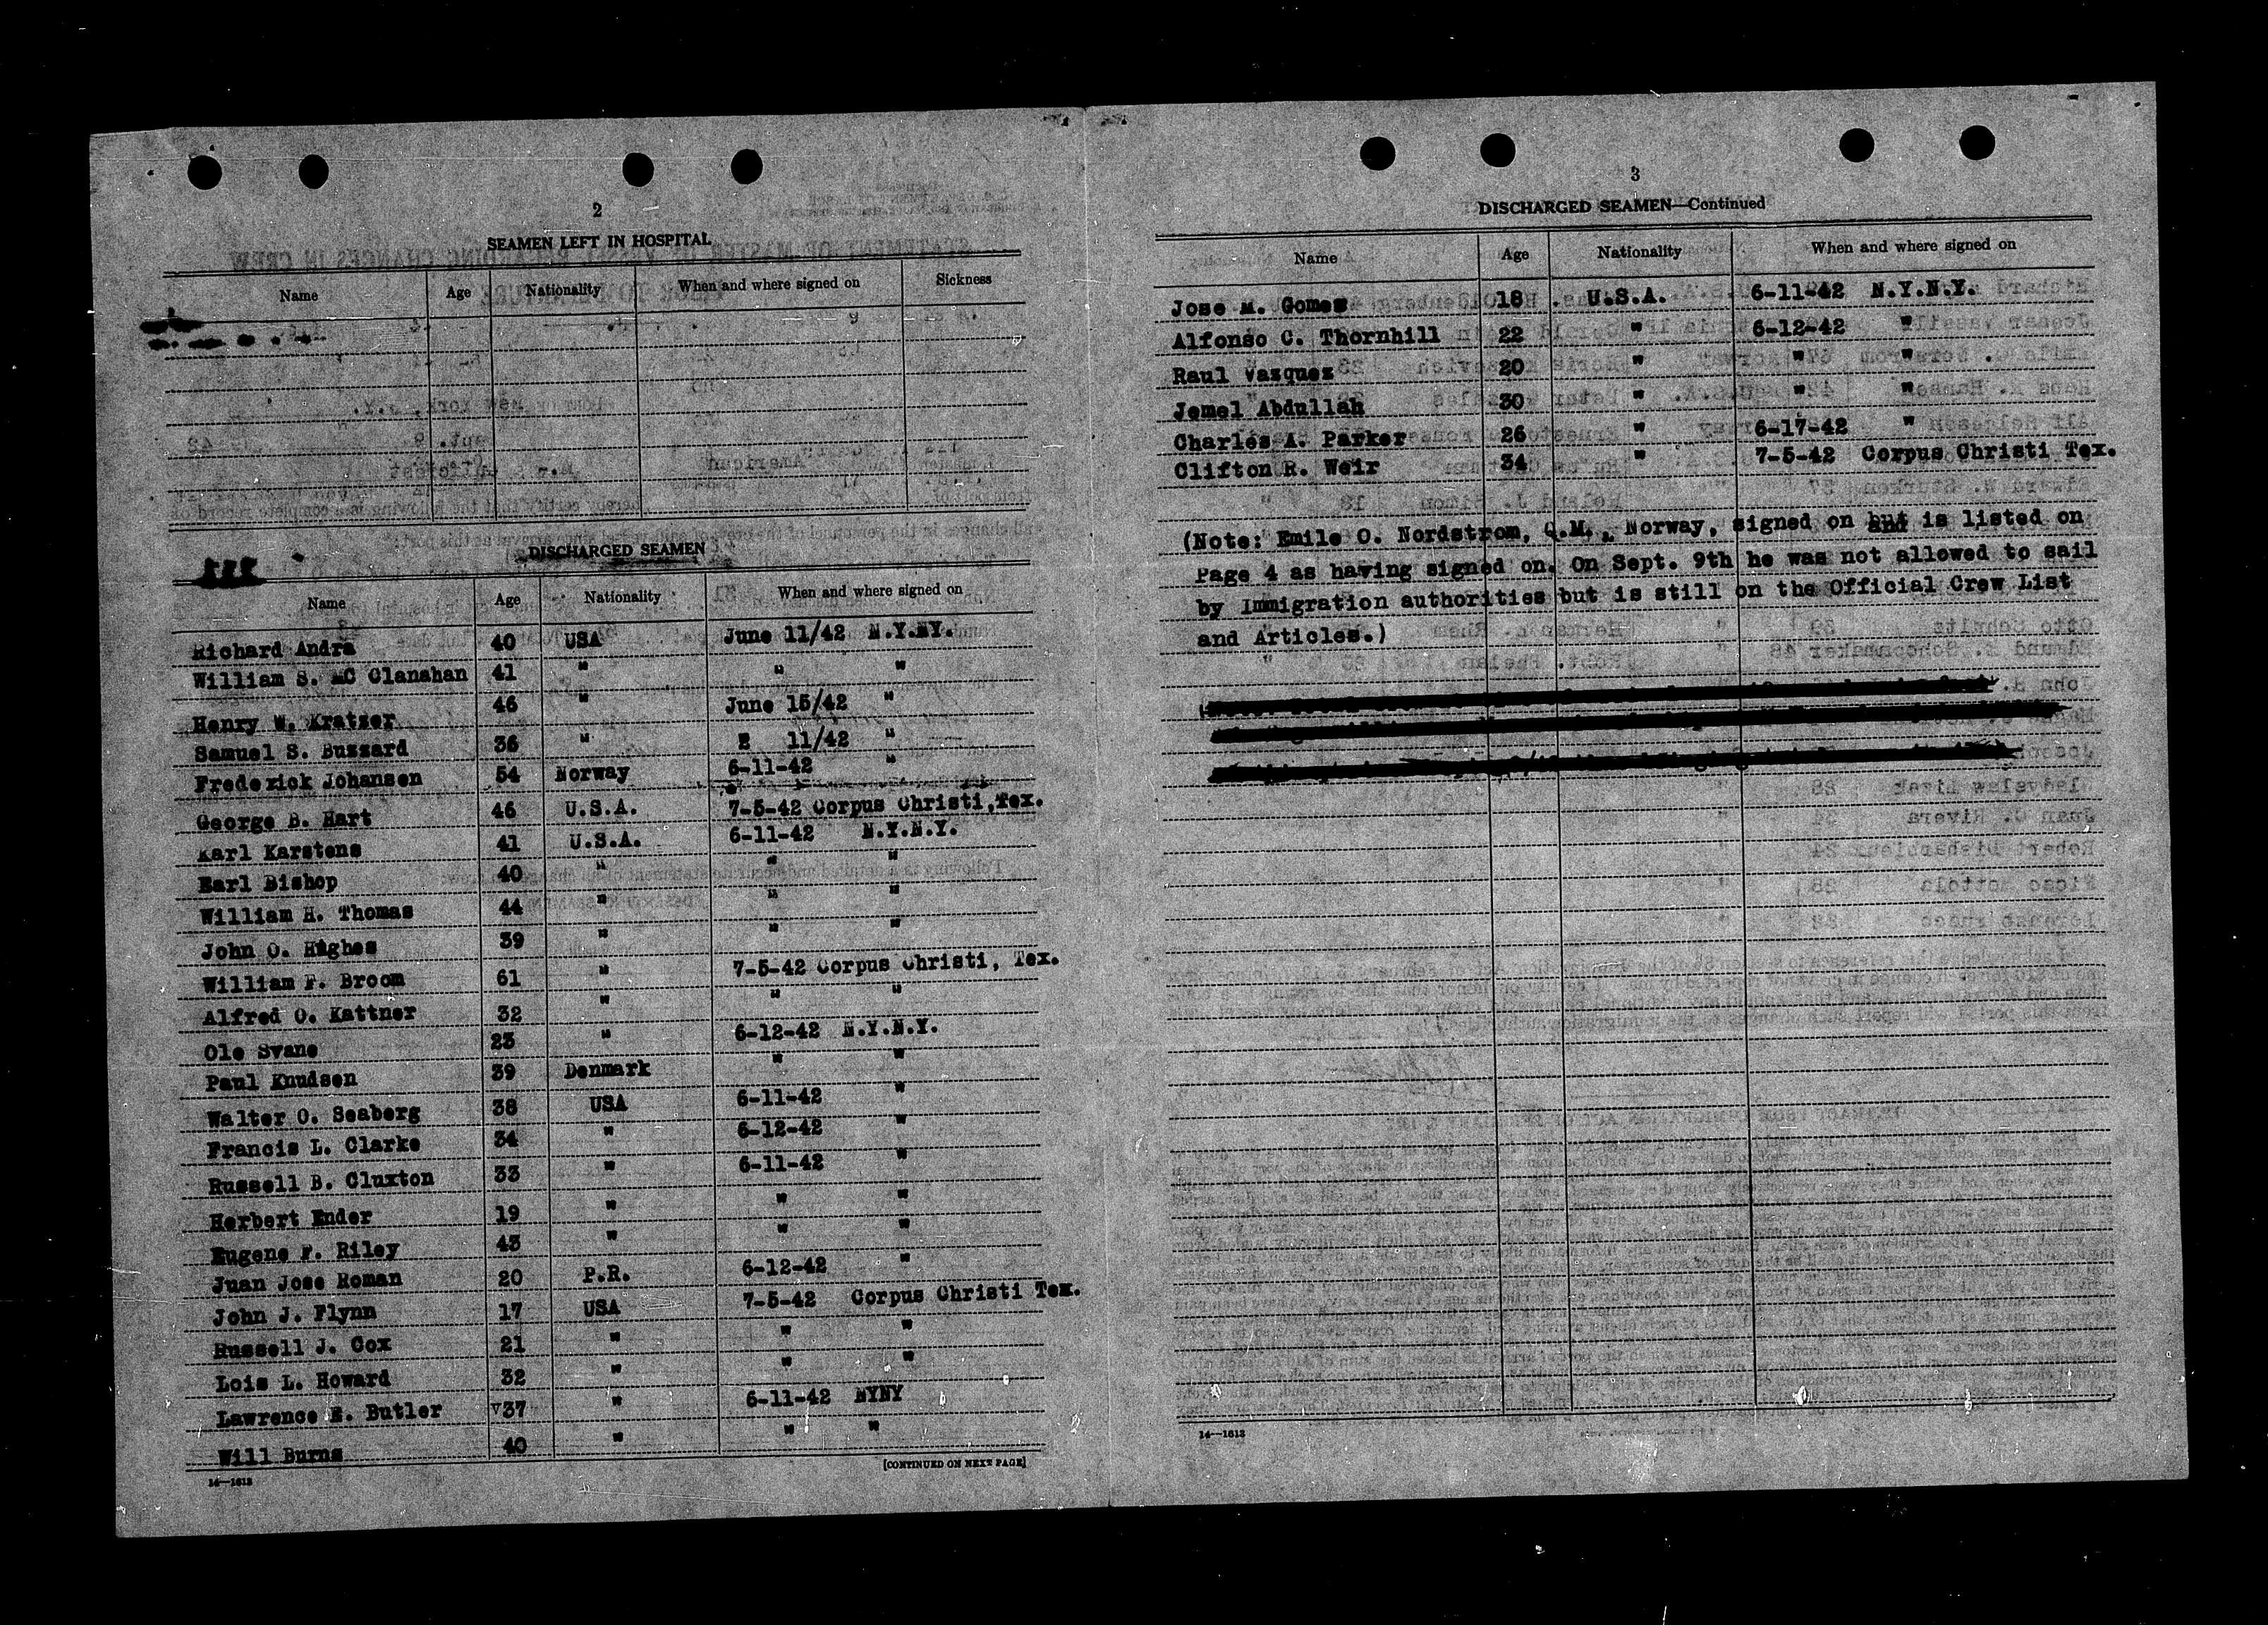 2
SEAMEN LEFT IN HOSPITAL
Name Age Nationality When and where signed on Sickness
DISCHARGED SEAMEN
Name Age Nationality When and where signed on
Richard Andra 40 USA June 11/42 N.Y.NY.
William S. MC Clanahan 41 " " "
Henry W. Kratzer 46 " June 15/42 "
Samuel S. Buzzard 36 " E 11/42 "
Frederick Johansen 54 Norway 6-11-42 "
George B. Hart 46 U.S.A. 7-5-42 Corpus Christi, Tex.
Karl Karstens 41 U.S.A. 6-11-42 N.Y.N.Y.
Earl Bishop 40 " " "
William H. Thomas 44 " " "
John O. Hughes 39 " " "
William F. Broom 61 " 7-5-42 Corpus Christi, Tex.
Alfred O. Kattner 32 " " "
Ole Svane 23 " 6-12-42 N.Y.N.Y.
Paul Knudsen 39 Denmark " "
Walter O. Seaberg 38 USA 6-11-42 "
Francis L. Clarke 34 " 6-12-42 "
Russell B. Cluxton 33 " 6-11-42 "
Herbert Ender 19 " " "
Eugene F. Riley 43 " " "
Juan Jose Roman 20 P.R. 6-12-42 "
John J. Flynn 17 USA 7-5-42 Corpus Christi Tex.
Russell J. Cox 21 " " "
Lois L. Howard 32 " " "
Lawrence E. Butler 37 " 6-11-42 NYNY
Will Burns 40 " " "
14—1613
[CONTINUED ON NEXT PAGE]
3
DISCHARGED SEAMEN—Continued
Name Age Nationality When and where signed on
Jose M. Gomez 18 U.S.A. 6-11-42 N.Y.N.Y.
Alfonso C. Thornhill 22 " 6-12-42 "
Raul Vazquez 20 " " "
Jemel Abdullah 30 " " "
Charles A. Parker 26 " 6-17-42 "
Clifton R. Weir 34 " 7-5-42 Corpus Christi Tex.
(Note: Emile O. Nordstrom, Q.M., Norway, signed on and is listed on
Page 4 as having signed on. On Sept. 9th he was not allowed to sail
by Immigration authorities but is still on the Official Crew List
and Articles.)
14—1613